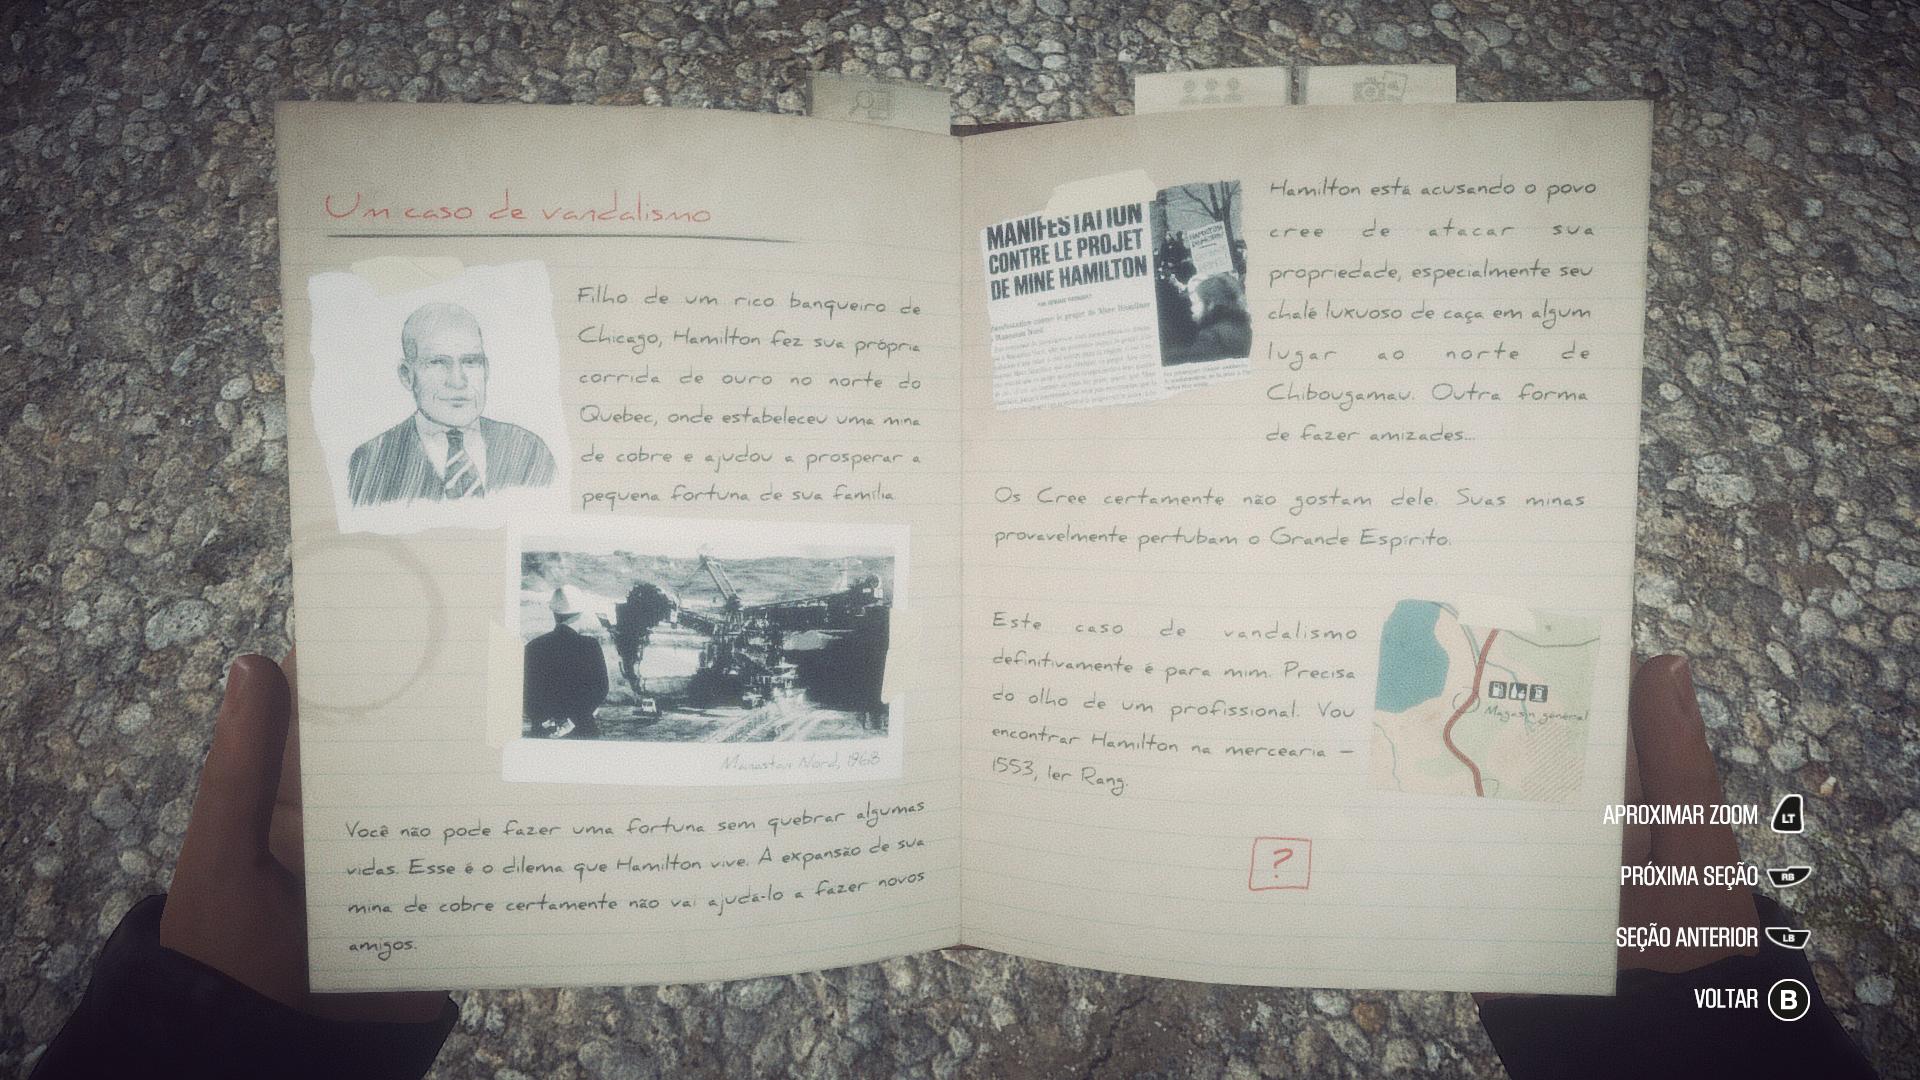 Um caso de vandalismo
Filho de um rico banqueiro de
Chicago, Hamilton fez sua própria
corrida de ouro no norte do
Quebec, onde estabeleceu uma mina
de cobre e ajudou a prosperar a
pequena fortuna de sua família.
Manastan Nord, 1968
Você não pode fazer uma fortuna sem quebrar algumas
vidas. Esse é o dilema que Hamilton vive. A expansão de sua
mina de cobre certamente não vai ajudá-lo a fazer novos
amigos.
MANIFESTATION
CONTRE LE PROJET
DE MINE HAMILTON
Hamilton está acusando o povo
cree de atacar sua
propriedade, especialmente seu
chalé luxuoso de caça em algum
lugar ao norte de
Chibougamau. Outra forma
de fazer amizades...
Os Cree certamente não gostam dele. Suas minas
provavelmente pertubam o Grande Espírito.
Este caso de vandalismo
definitivamente é para mim. Precisa
do olho de um profissional. Vou
encontrar Hamilton na mercearia –
1553, 1er Rang.
Magasin général
?
APROXIMAR ZOOM LT
PRÓXIMA SEÇÃO RB
SEÇÃO ANTERIOR LB
VOLTAR B